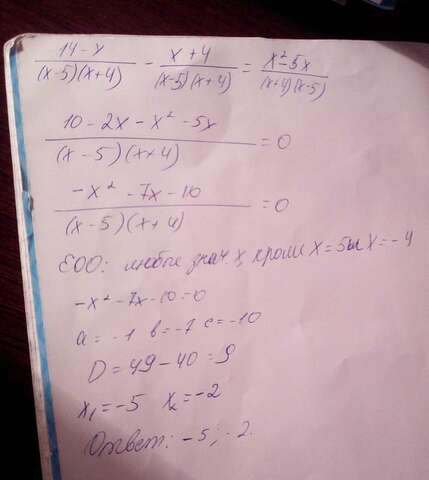 14-x/(x-5)(x+4) - x+4/(x-5)(x+4) = x²-5x/(x+4)(x-5)
10-2x-x²-5x/(x-5)(x+4) = 0
-x²-7x-10/(x-5)(x+4) = 0
ОО: любые знач. x, кроме x=5 и x=-4
-x²-7x-10=0
a=-1 b=-7 c=-10
D=49-40=9
x₁=-5 x₂=-2
Ответ: -5; -2.